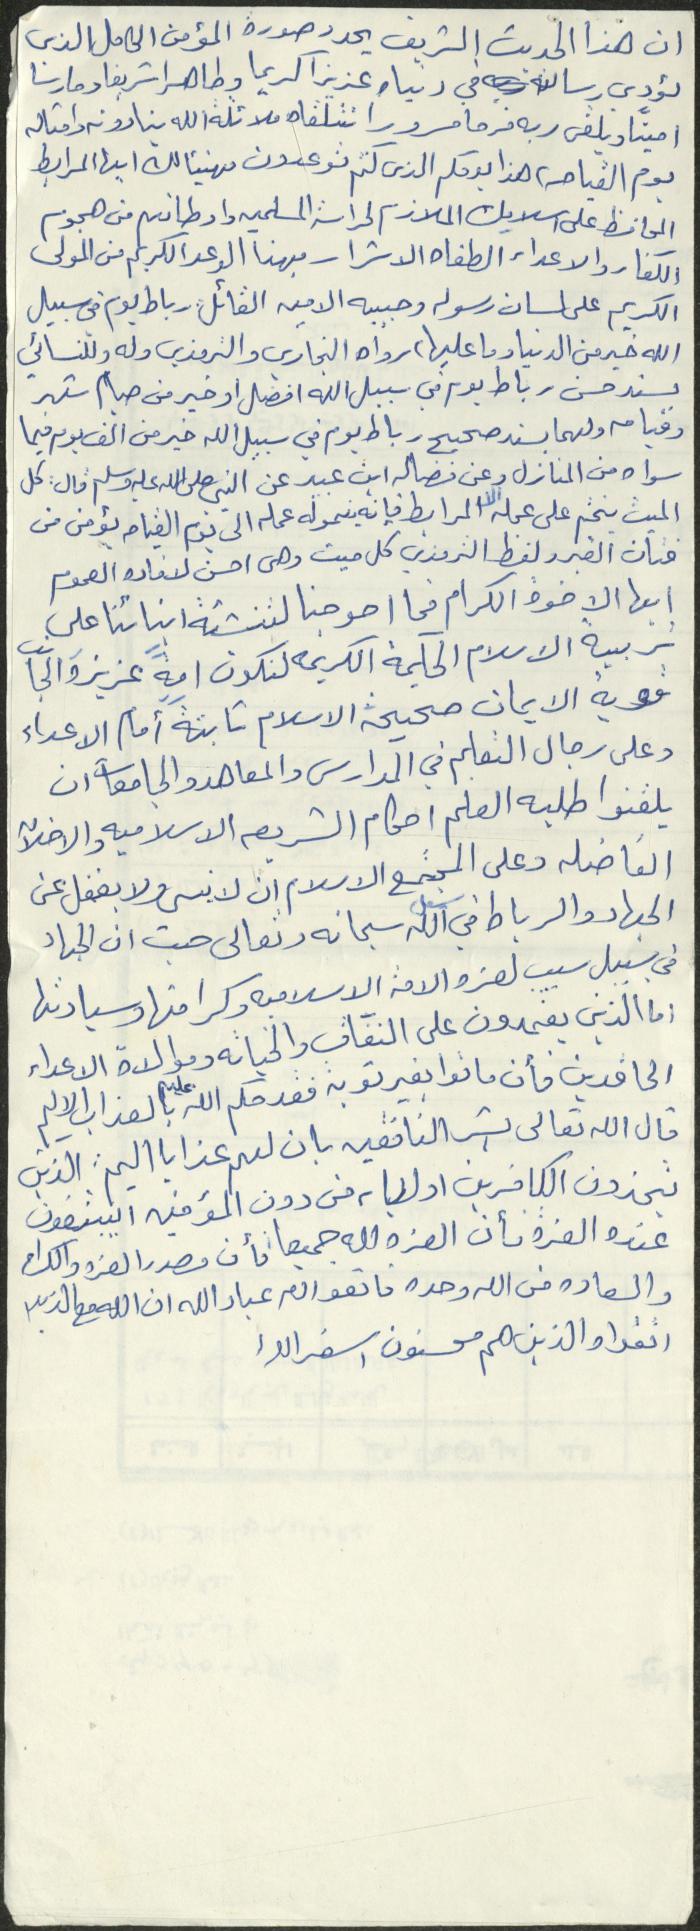 ان هذا الحديث الشريف يحدد صورة المؤمن الكامل الذي
يؤدي رسالته في دنياه عزيزا كريما وطاهرا شريفا وحارسا
امينا ويلقى ربه فرحا مسرورا تتلقاه ملائكة الله ينادونه وامثاله
يوم القيامه، هذا يومكم الذي كنتم توعدون فهنيئا لك ايها المرابط
المحافظ على اسلامك الملازم لحراسة المسلمين واوطانهم من هجوم
الكفار والاعداء الطغاه الاشرار فبهذا الوعد الكريم من المولى
الكريم على لسان رسوله وحبيبه الامين القائل: رباط يوم في سبيل
الله خير من الدنيا وما عليها، رواه البخاري والترمذي وله وللنسائي
بسند حسن رباط يوم في سبيل الله افضل او خير من صيام شهر
وقيامه ولهما بسند صحيح رباط يوم في سبيل الله خير من الف يوم فيما
سواه من المنازل وعن فضاله ابن عبيد عن النبي صلى الله عليه وسلم قال: كل
الميت يختم على عمله الا المرابط فإنه ينمو له عمله الى يوم القيامه يؤمن من
فتان القبر ولفظ الترمذي كل ميت وهي احسن لافاده العموم
ايها الاخوة الكرام فما احوجنا لتنشئة ابنائنا على
تربية الاسلام الحكيمة الكريمه لتكون امة عزيزة الجانب
قوية الايمان صحيحة الاسلام ثابتة أمام الاعداء
وعلى رجال التعليم في المدارس والمعاهد والجامعات ان
يلقنوا طلبه العلم احكام الشريعه الاسلاميه والاخلاق
الفاضله وعلى المجتمع الاسلام ان لا ينسى ولا يغفل عن
الجهاد والرباط في سبيل الله سبحانه وتعالى حيث ان الجهاد
في سبيل سبب لعزه الامة الاسلاميه وكرامتها وسيادتها
اما الذين يعتمدون على النفاق والخيانه وموالاة الاعداء
الحاقدين فأن ماتوا بغير توبة فقد حكم الله عليهم بالعذاب الاليم
قال الله تعالى بشر المنافقين بان لهم عذابا اليم: الذين
يتخذون الكافرين اولياء من دون المؤمنين ايبتغون
عنده العزة فأن العزه لله جميعا، فأن مصدر العزه والكرامه
والسعاده من الله وحده فاتقوا الله عباد الله ان الله مع الذين
اتقوا والذين هم محسنون استغفر الله